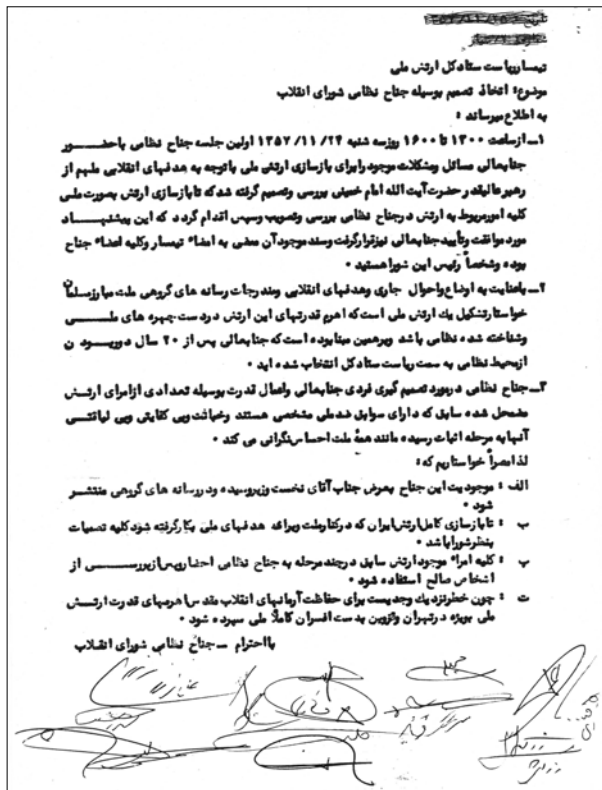 تیمسار ریاست ستاد کل ارتش ملی
موضوع: اتخاذ تصمیم بوسیله جناح نظامی شورای انقلاب
به اطلاع میرساند :
۱ـ ازساعت ۱۳۰۰ تا ۱۶۰۰ روزسه شنبه ۲۴/ ۱۱/ ۱۳۵۷ اولین جلسه جناح نظامی باحضـــور
جنابعالی مسائل ومشکلات موجودرابرای بازسازی ارتش ملی باتوجه به هدفهای انقلابی ملهم از
رهبرعالیقدر حضرت آیت الله امام خمینی بررسی وتصمیم گرفته شدکه تابازسازی ارتش بصورت ملی
کلیه امورمربوط به ارتش درجناح نظامی بررسی وتصویب وسپس اقدام گردد که این پیشنهــاد
مورد موافقت وتأیید جنابعالی نیزقرارگرفت وسند موجودآن ممضی به امضاء تیمسار وکلیه اعضاء جناح
بوده وشخصاً رئیس این شورا هستید .
۲ـ باعنایت به اوضاع واحوال جاری وهدفهای انقلابی ومندرجات رسانه های گروهی ملت مبارزمسلمان
خواستارتشکیل یك ارتش ملی است که اهرم قدرتهای این ارتش دردست چهره های ملـــی
وشناخته شده نظامی باشد وبرهمین مبنابوده است که جنابعالی پس از ۲۰ سال دوربـــودن
ازمحیط نظامی به سمت ریاست ستادکل انتخاب شده اید .
۳ـ جناح نظامی درمورد تصمیم گیری فردی جنابعالی واعمال قدرت بوسیله تعدادی ازامرای ارتــش
مضمحل شده سابق که دارای سوابق ضد ملی مشخصی هستند وخیانت وبی کفایتی وبی لیاقتـی
آنهابه مرحله اثبات رسیده مانند همهٔ ملت احساس نگرانی می کند .
لذا مصراً خواستاریم که :
الف : موجودیت این جناح بعرض جناب آقای نخست وزیررسیده ودررسانه های گروهی منتشـر
شود .
ب : تابازسازی کامل ارتش ایران که درکنارملت وبرای هدفهای ملی بکارگرفته شودکلیه تصمیمات
بنظرشوراباشد .
پ : کلیه امراء موجودارتش سابق درچند مرحله به جناح نظامی احضاروپس ازبررســی از
اشخاص صالح استفاده شود .
ت : چون خطرنزدیك وجدیست برای حفاظت آرمانهای انقلاب مقدس اهرمهای قدرت ارتــش
ملی بویژه درتهران وقزوین بدست افسران کاملاً ملی سپرده شود .
بااحترام ـ جناح نظامی شورای انقلاب